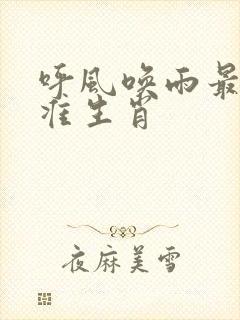 呼风唤雨最
准生肖
夜麻美雪